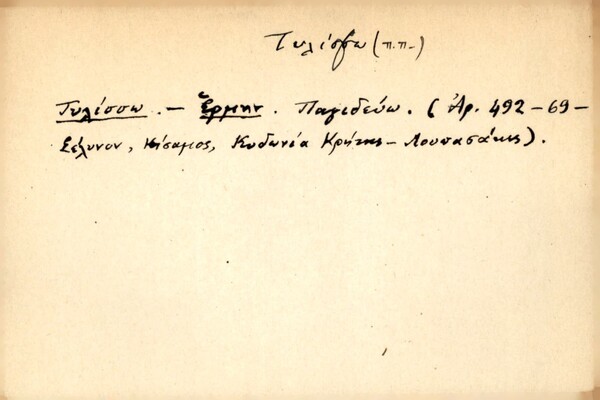 Τυλίσσω (π.π.)
Τυλίσσω. – Ἑρμην. Παγιδεύω. (Ἀρ. 492 – 69 –
Σέλυνον, Κίσαμος, Κυδωνία Κρήτης – Λουπασάκις).